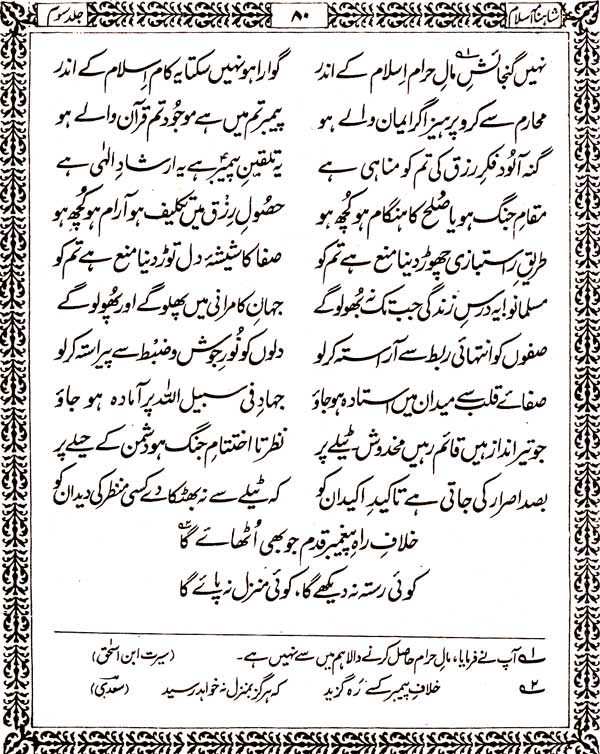 شاہنامۂ اسلام ۸۰ جلد سوم
نہیں گنجائشِ مالِ حرام اِسلام کے اندر ۱؎ گوارا ہو نہیں سکتا یہ کام اِسلام کے اندر
محارم سے کرو پرہیز اگر ایمان والے ہو پیمبر تم میں ہے موجُود تم قرآن والے ہو
گنہ آلُود فکرِ رزق کی تم کو مناہی ہے یہ تلقینِ پیمبرؐ ہے یہ ارشادِ الٰہی ہے
مقامِ جنگ ہو یا صُلح کا ہنگام ہو کچھ ہو حصُولِ رِزق میں تکلیف ہو آرام ہو کُچھ ہو
طریقِ راستبازی چھوڑ دینا منع ہے تم کو صفا کا شیشۂ دل توڑ دینا منع ہے تم کو
مسلمانو! یہ درسِ زندگی جب تک نہ بھُولو گے جہانِ کامرانی میں پھلو گے اور پھُولو گے
صفوں کو انتہائی ربط سے آراستہ کر لو دلوں کو نُورِ جوش و ضبْط سے پیراستہ کر لو
صفائے قلب سے میدان میں استادہ ہو جاؤ جہادِ فی سبیل اللہ پر آمادہ ہو جاؤ
جو تیر انداز ہیں قائم رہیں مخدوش ٹیلے پر نظر تا اختتامِ جنگ ہو دشمن کے حیلے پر
بصد اصرار کی جاتی ہے تاکیدِ اکید ان کو کہ ٹیلے سے نہ بھٹکا دے کسی منظر کی دید ان کو
خلافِ راہِ پیغمبر قدم جو بھی اُٹھائے گا ۲؎
کوئی رستہ نہ دیکھے گا، کوئی منزل نہ پائے گا
۱؎ آپ نے فرمایا، مالِ حرام حاصل کرنے والا ہم میں سے نہیں ہے۔ (سیرت ابن اسحٰق)
۲؎ خلافِ پیمبر کسے رَہ گزید کہ ہرگز بمنزل نہ خواہد رسید (سعدیؒ)